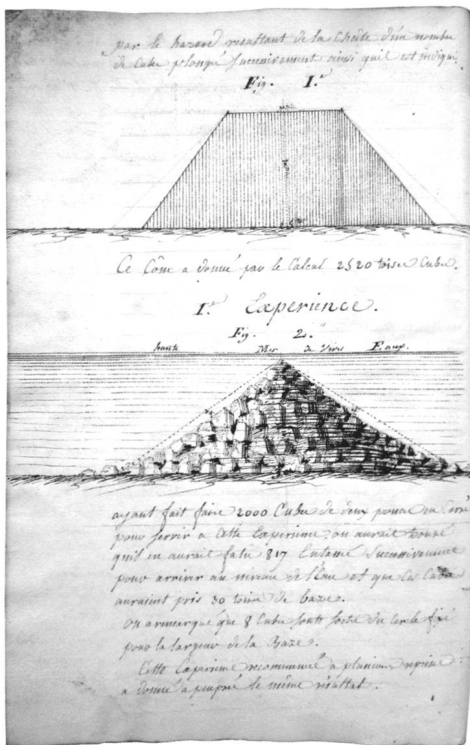 par le hazard resultant de la Chûte d'un nombre
de Cube plongé Successivement ainsi quil est indiqué
Fig. 1.re
Ce Cône a donné par le Calcul 2520 toises Cube.
1.re Experience.
Fig. 2.
haute Mer de Vives Eaux.
ayant fait faire 2000 Cube de deux pouce en Carré
pour servir a Cette Experience, on aurait trouvé
quil en aurait falu 817 Entassé Successivement
pour arriver au niveau de l'Eau et que les Cubes
auraient pris 30 toise de baze.
On a remarqué que 8 Cube sont sortie du Cercle fixé
pour la largeur de la Baze.
Cette Experience recommencé a plusieurs reprise
a donné apeuprés le même résultat.